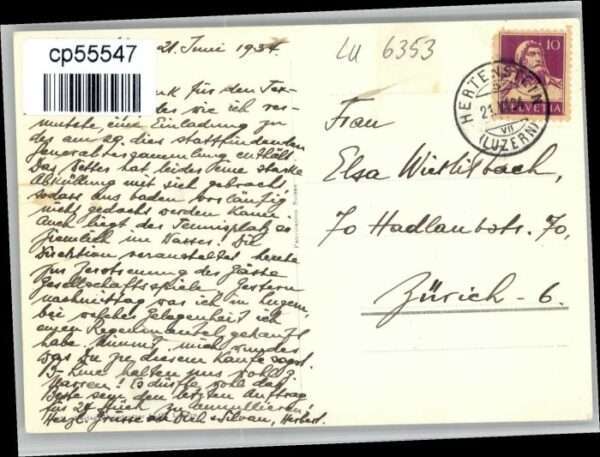 cp55547
21. Juni 1934.
LU 6353
10
HELVETIA
HERTENSTEIN
21.
VII
(LUZERN)
für den Tex-
wie ich ver-
mutete, eine Einladung zu
der am 29. dies stattfindenden
Generalversammlung enthält.
Das Wetter hat leider eine starke
Abkühlung mit sich gebracht,
sodass ans baden vorläufig
nicht gedacht werden kann.
Auch liegt der Tennisplatz
ziemlich im Wasser! Die
Direktion veranstaltet heute
zur Zerstreuung der Gäste
Gesellschaftsspiele. Gestern
nachmittag war ich in Luzern,
bei welcher Gelegenheit ich
einen Regenmantel gekauft
habe. Nimmt mich wunder
was Du zu diesem Kaufe sagst.
halten uns wohl z.
Narren! Es dürfte wohl das
Beste sein, den letzten Auftrag
für 24 Stück zu annullieren!
Herzl. Grüsse an Dich & Silvan, Herbert.
Frau
Elsa Wirthlisbach,
70 Hadlaubstr. 70,
Zürich - 6.